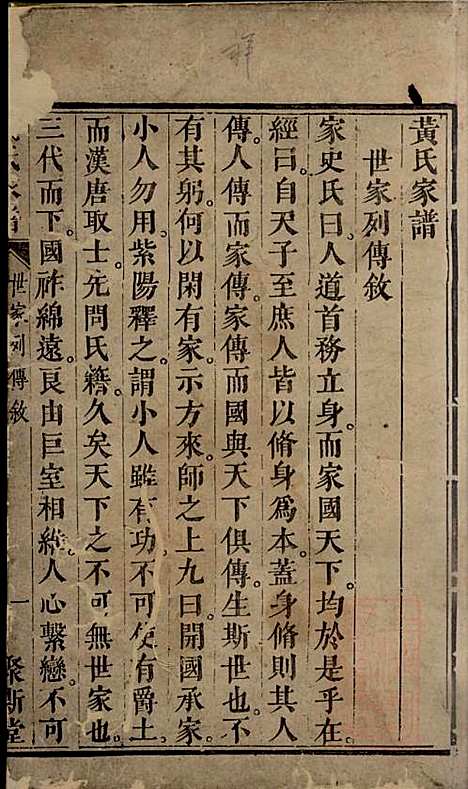 祥
黃氏家譜
世家列傳敘
家史氏曰人道首務立身而家國天下均於是乎在
經曰自天子至庶人皆以脩身爲本蓋身脩則其人
傳人傳而家傳家傳而國與天下俱傳生斯世也不
有其躬何以閑有家示方來師之上九曰開國承家
小人勿用紫陽釋之謂小人雖有功不可使有爵土
而漢唐取士先問氏籍久矣天下之不可無世家也
三代而下國祚綿遠良由巨室相維人心繫戀不可
氏家譜
世家列傳敘
一
聚斯堂